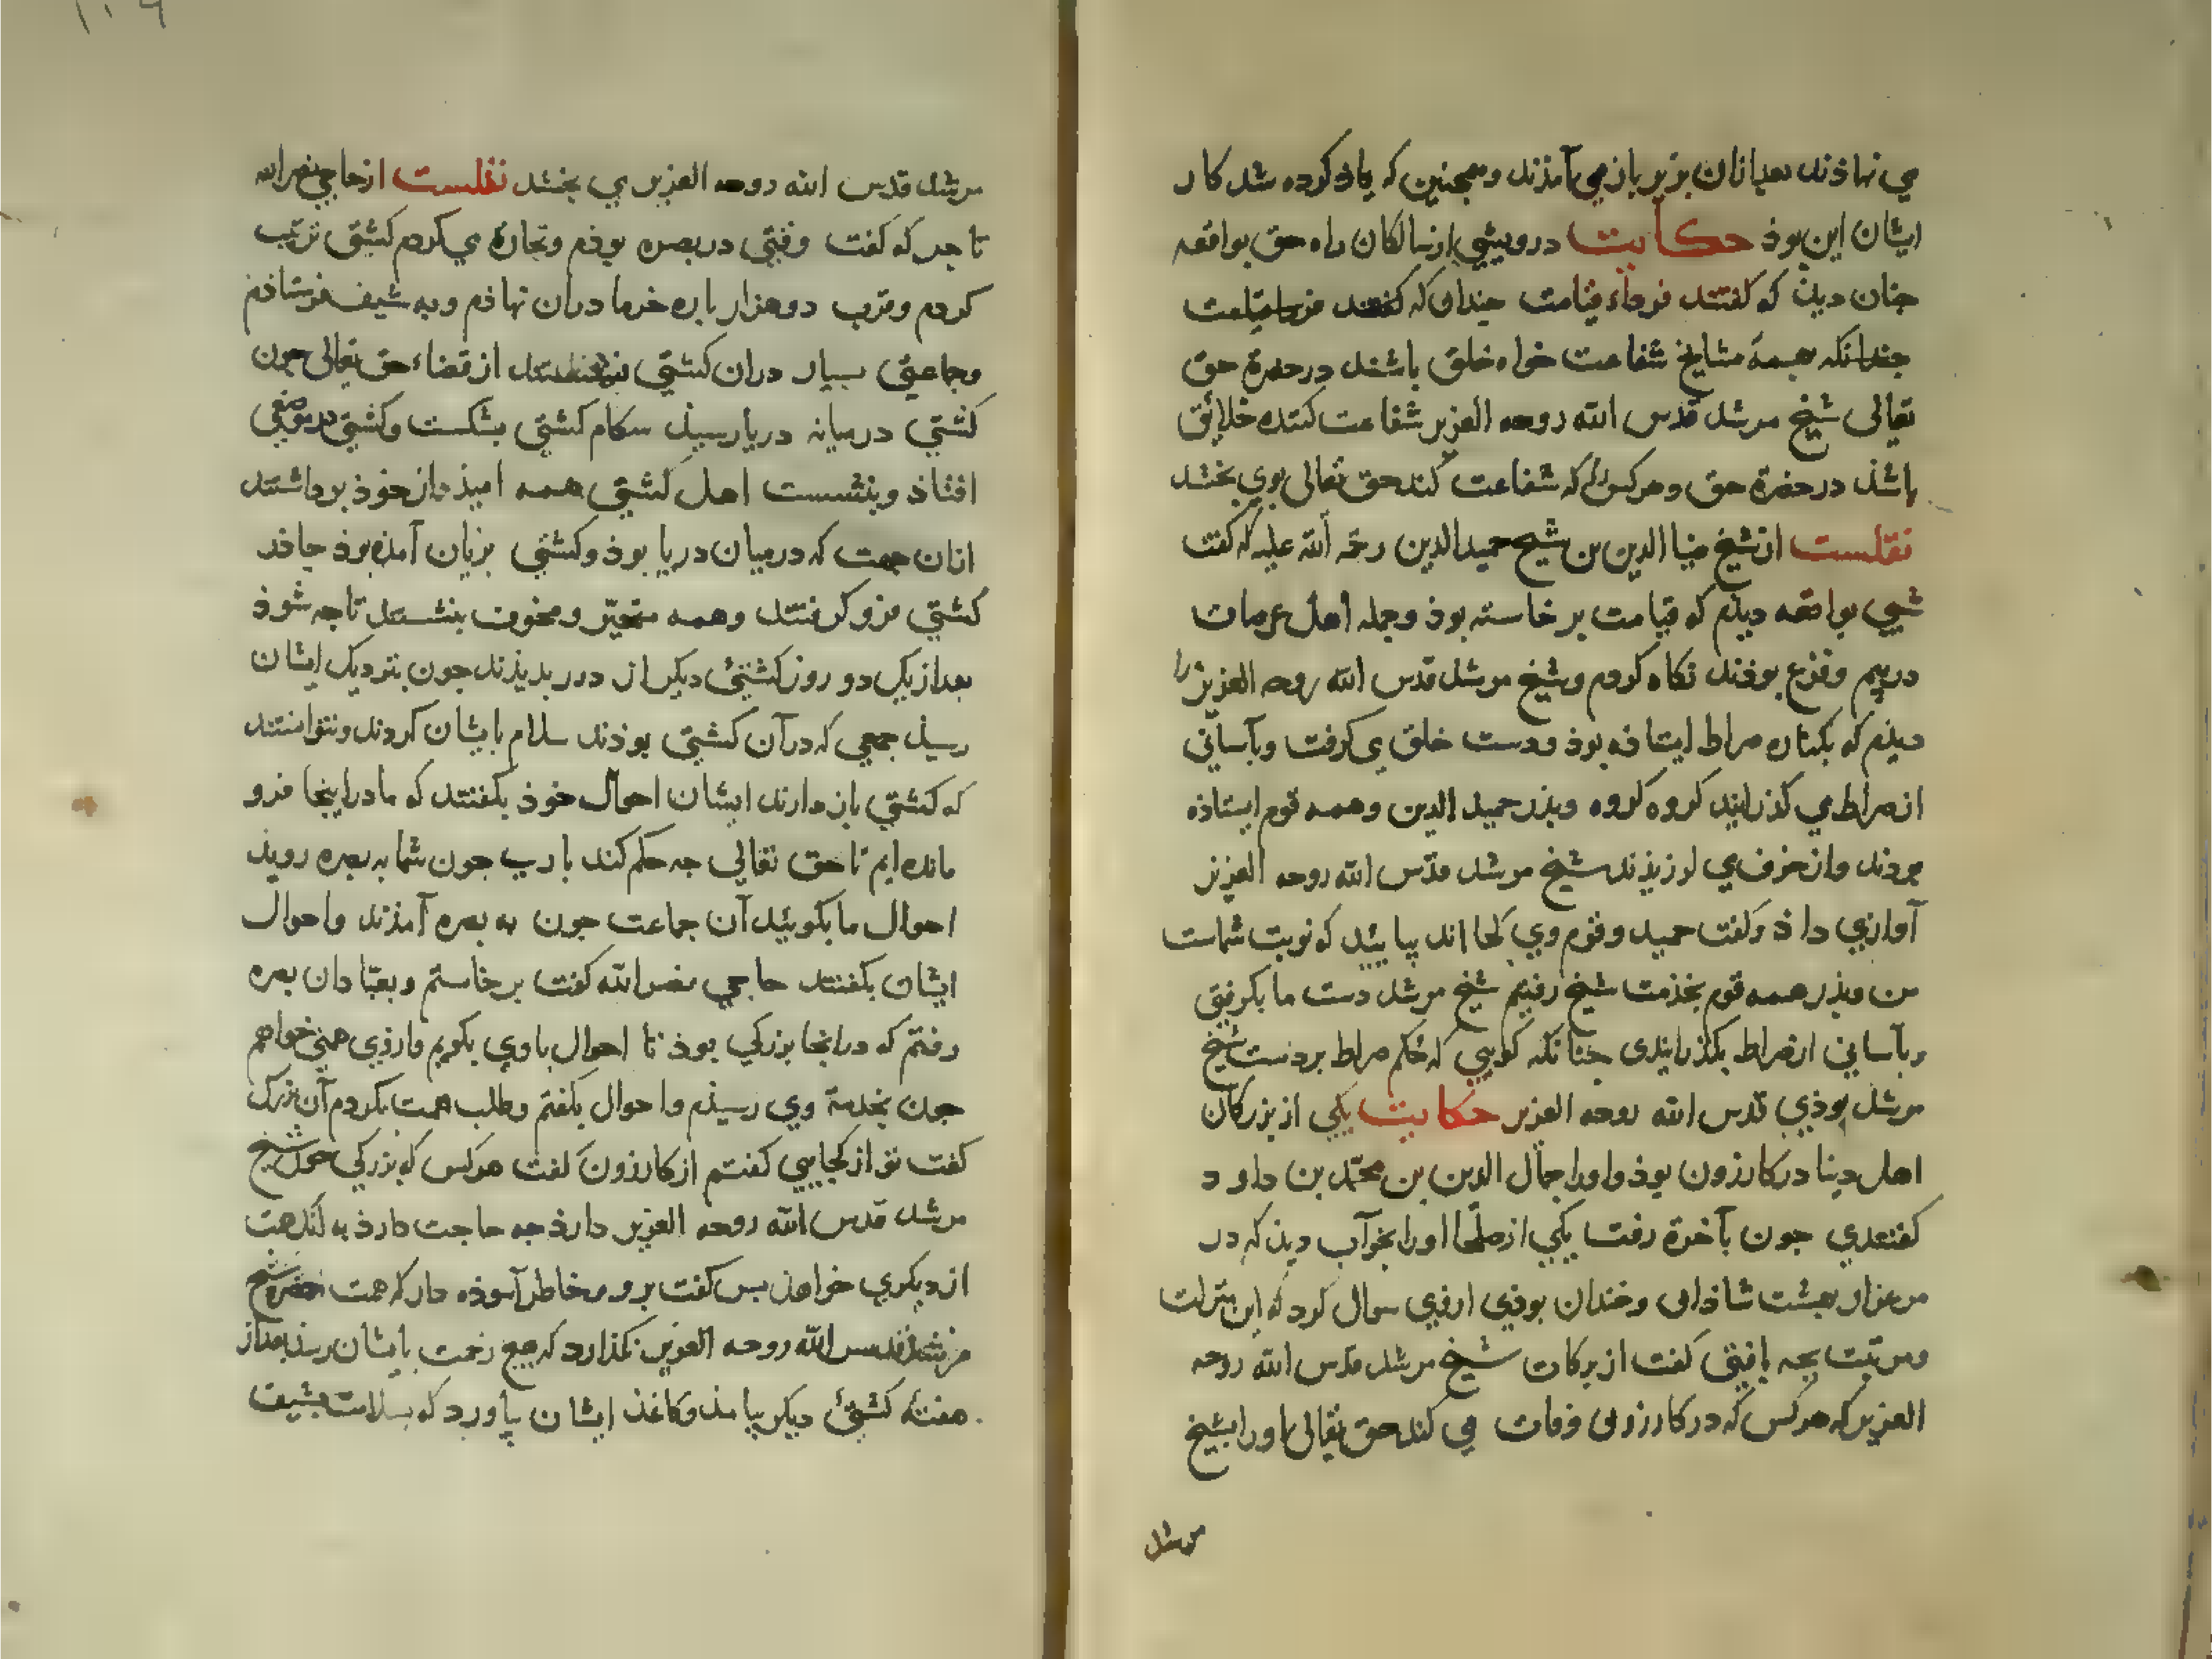 می نهاذند بعد ازان بزیر باز می آمذند و همچنین که یاذ کرده شد کار
ایشان این بوذ حکایت درویشی از سالکان راه حق بواقعه
جنان دیذ که کفتند فرداء قیامت جندان که کفتند فرداء قیامت
جندانکه همه مشایخ شفاعت خواه خلق باشند در حضرة حق
تعالی شیخ مرشد قدس الله روحه العزیز شفاعت کننده خلائق
باشذ در حضرة حق و هر کس را که شفاعت کند حق تعالی بوی بخشد
نقلست از شیخ ضیا الدین بن شیخ حمید الدین رحمة الله علیه که کفت
شبی بواقعه دیذم که قیامت بر خاسته بوذ و جمله اهل عرصات
در بیم و فزع بوذند نکاه کردم و شیخ مرشد قدس الله روحه العزیز را
دیذم که بکناره صراط ایستاذه بوذ و دست خلق می کرفت و بآسانی
از صراط می کذرانید کروه کروه و پذر حمید الدین و همه قوم ایستاذه
بوذند و از خوف می لرزیذند شیخ مرشد قدس الله روحه العزیز
آوازی داذ و کفت حمید و قوم وی کجا اند بیایید که نوبت شماست
من و پذر و همه قوم بخذمت شیخ رفتیم شیخ مرشد دست ما بکرفتی
و بآسانی از صراط بکذرانیدی جنانکه کویی که حکم صراط بر دست شیخ
مرشد بوذی قدس الله روحه العزیز حکایت یکی از بزرکان
اهل دینا در کازرون بوذ و اورا جمال الدین بن محمد بن داود
کفتندی جون بآخرة رفت یکی از صلحا اورا بخواب دیذ که در
مرغزار بهشت شاذان و خندان بوذی از وی سوال کرد که این منزلت
و مرتبت بجه یافتی کفت از برکات شیخ مرشد قدس الله روحه
العزیز که هر کس که در کازرون وفات می کند حق تعالی اورا بشیخ
مرشد
۱۰۹
مرشد قدس الله روحه العزیز می بخشد نقلست از حاجی نصر الله
تاجر که کفت وقتی در بصره بوذم و تجارة می کردم کشتی ترتیب
کردم و قرب دو هزار باره خرما دران نهاذم و به شیف فرستاذم
و جماعتی بسیار دران کشتی بنشستند از قضاء حق تعالی جون
کشتی در میانه دریا رسیذ سکام کشتی بشکست و کشتی در موضعی
افتاذ و بنشست اهل کشتی همه امیذ از خوذ برداشتند
ازان جهت که در میان دریا بوذ و کشتی بزیان آمذه بوذ جاذر
کشتی فرو کرفتند و همه متحیر و مخوف بنشستند تا جه شوذ
بعد از یک دو روز کشتیء دیکر از دور بدیذند جون بنزدیک ایشان
رسیذ جمعی که در آن کشتی بوذند سلام بایشان کردند و نتوانستند
که کشتی باز دارند ایشان احوال خوذ بکفتند که ما در اینجا فرو
مانده ایم تا حق تعالی جه حکم کند یارب جون شما به بصره رویذ
احوال ما بکویید آن جماعت جون به بصره آمذند و احوال
ایشان بکفتند حاجی نصر الله کفت بر خاستم و بعبادان بصره
رفتم که درانجا بزرکی بوذ تا احوال باوی بکویم و از وی همتی خواهم
جون بخدمة وی رسیذم و احوال بکفتم و طلب همت بکردم آن بزرک
کفت تو از کجایی کفتم از کازرون کفت هر کس که بزرکی جون شیخ
مرشد قدس الله روحه العزیز دارذ جه حاجت دارذ به آنک همت
از دیکری خواهذ بس کفت برو و خاطر آسوذه دار که همت حضرة شیخ
مرشد قدس الله روحه العزیز نکذارد که هیچ زحمت بایشان رسذ بعد از
هفتهٔ کشتیء دیکر بیامذ و کاغذ ایشان بیاورد که بسلامت بشیف